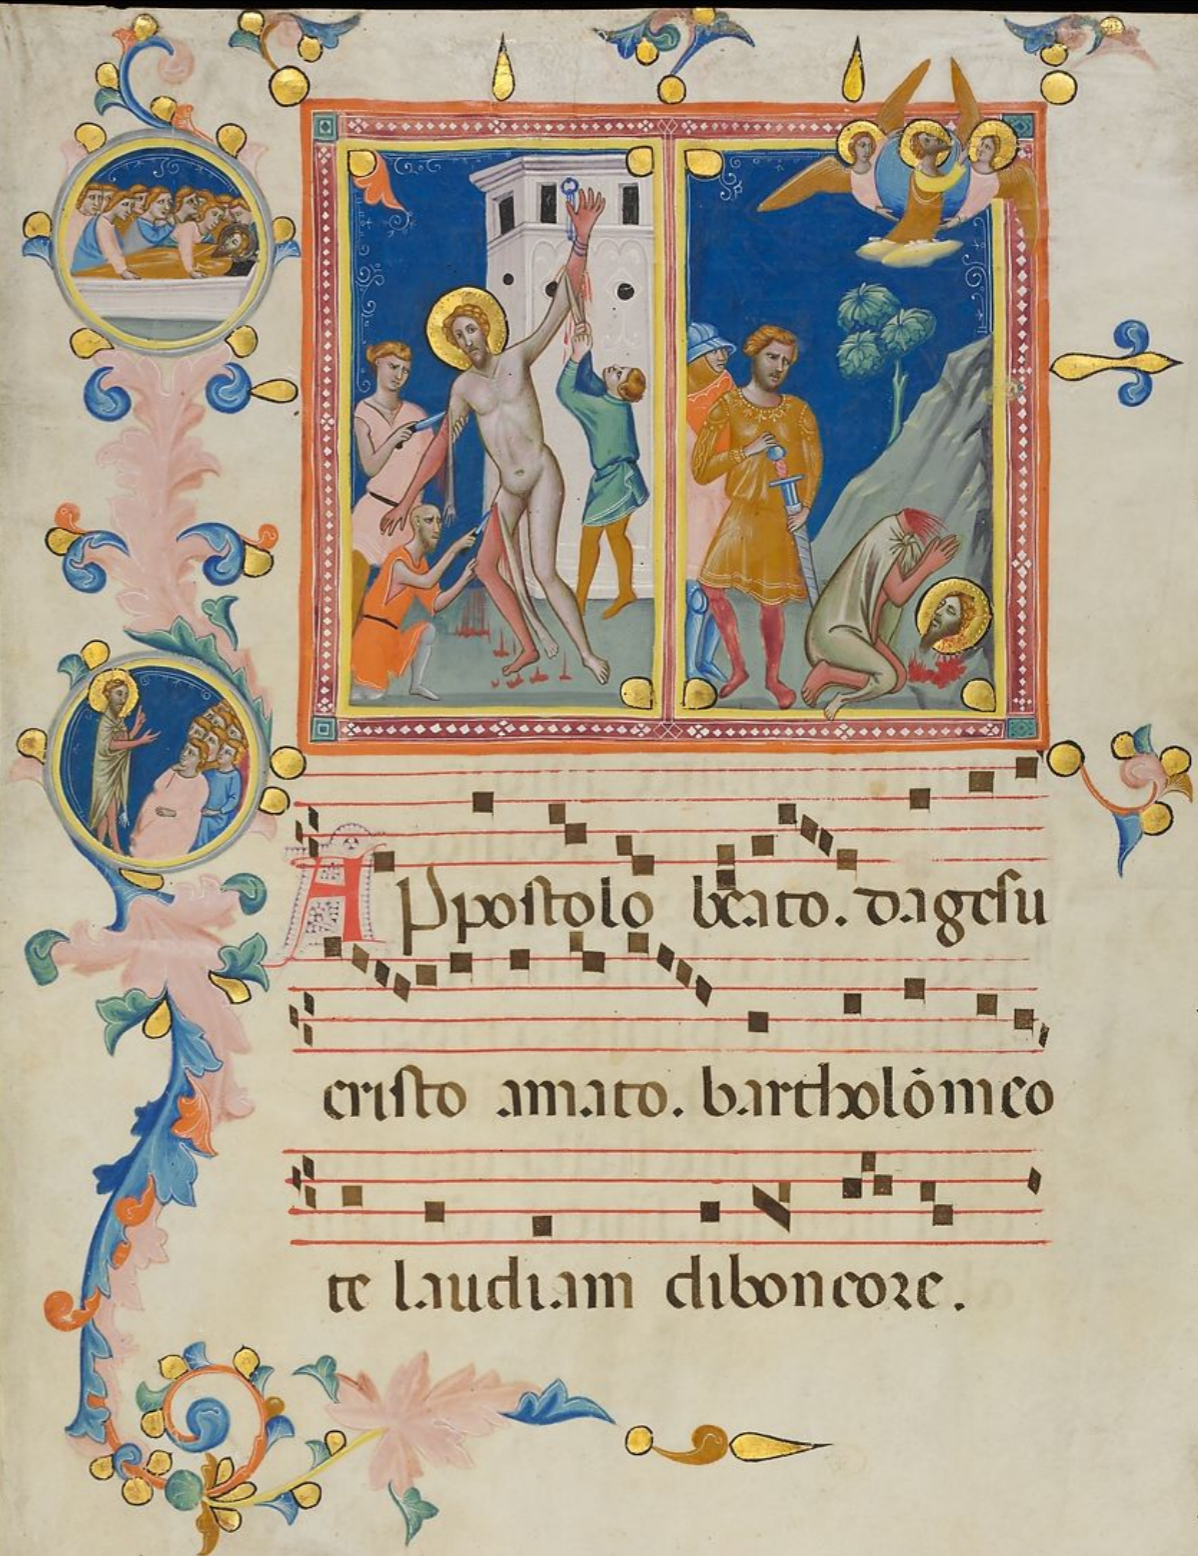 APpostolo beato. dagesu
cristo amato. bartholómeo
te laudiam diboncore.